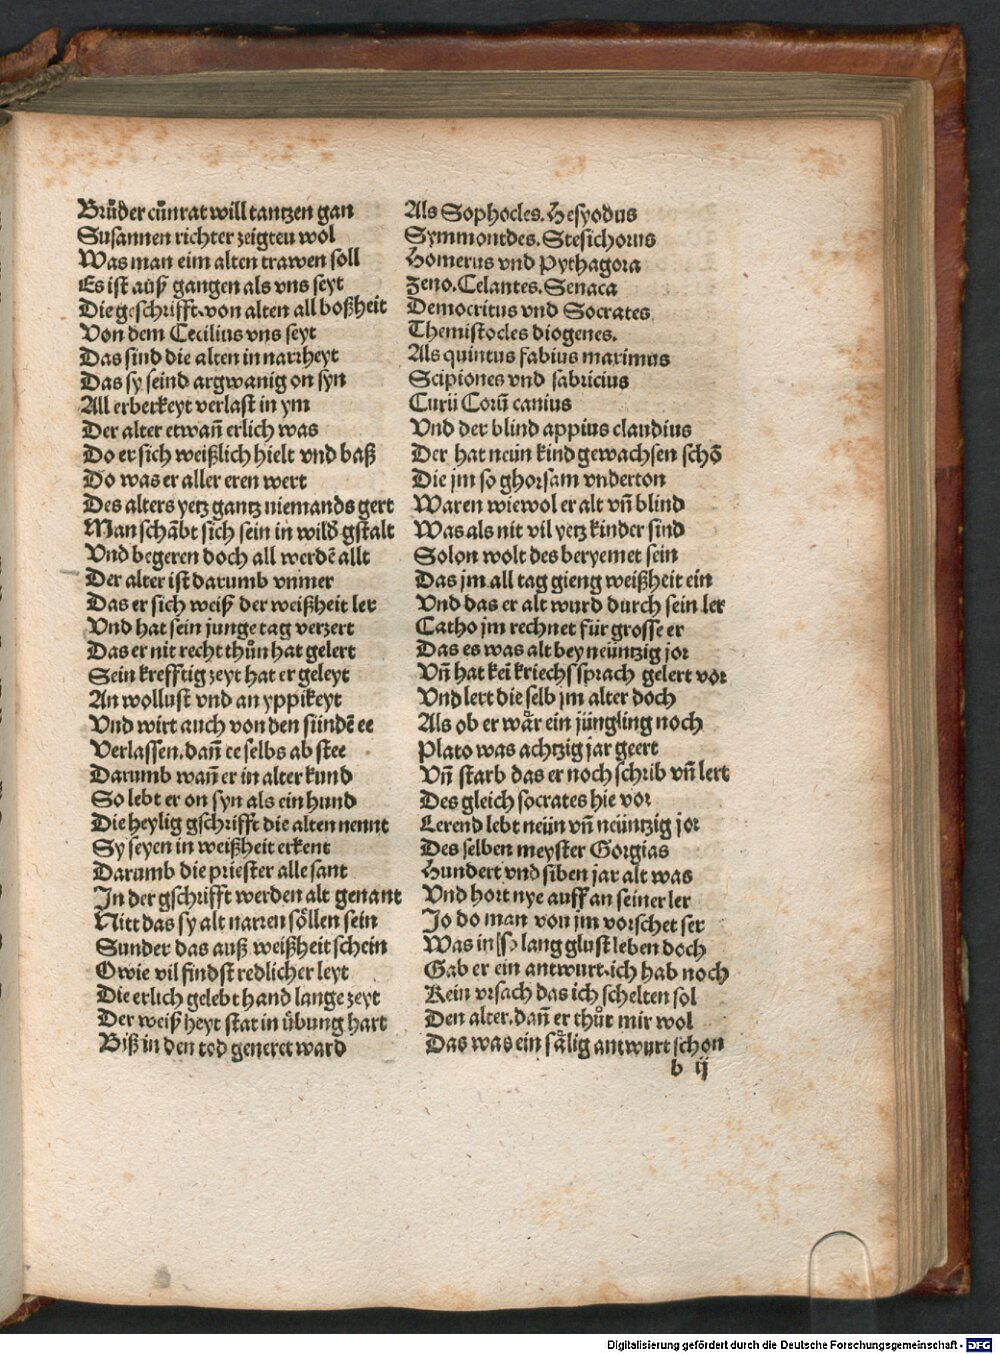 Brůder cůnrat will tantzen gan
Susannen richter zeigten wol
Was man eim alten trawen soll
Es ist auß gangen als vns seyt
Die geschrifft von alten all boßheit
Von dem Cecilius vns seyt
Das sind die alten in narrheyt
Das sy seind argwanig on syn
All erberkeyt verlast in ym
Der alter etwañ erlich was
Do er sich weißlich hielt vnd baß
Do was er aller eren wert
Des alters yetz gantz niemands gert
Man schåbt sich sein in wild gstalt
Vnd begeren doch all werdē allt
Der alter ist darumb vnmer
Das er sich weiß der weißheit ler
Vnd hat sein junge tag verzert
Das er nit recht thůn hat gelert
Sein krefftig zeyt hat er geleyt
An wollust vnd an yppikeyt
Vnd wirt auch von den sündē ee
Verlassen. dañ ee selbs ab stee
Darumb wañ er in alter kund
So lebt er on syn als ein hund
Die heylig gschrifft die alten nennt
Sy seyen in weißheit erkent
Darumb die priester alle sant
In der gschrifft werden alt genant
Nitt das sy alt narren söllen sein
Sunder das auß weißheit schein
O wie vil findst redlicher leyt
Die erlich gelebt hand lange zeyt
Der weißheyt stat in übung hart
Biß in den tod generet ward
Als Sophocles. Hesyodus
Symmontdes. Stesichorus
Homerus vnd Pythagora
Zeno. Celantes. Senaca
Democritus vnd Socrates
Themistocles diogenes.
Als quintus fabius maximus
Scipiones vnd fabricius
Curii Corū canius
Vnd der blind appius claudius
Der hat neün kind gewachsen schō
Die jm so ghorsam vnderton
Waren wiewol er alt vñ blind
Was als nit vil yetz kinder sind
Solon wolt des beryemet sein
Das jm all tag gieng weißheit ein
Vnd das er alt wurd durch sein ler
Catho jm rechnet für grosse er
Das es was alt bey neüntzig jor
Vñ hat keī kriechs sprach gelert vor
Vnd lert die selb jm alter doch
Als ob er wår ein jüngling noch
Plato was achtzig jar geert
Vñ starb das er noch schrib vñ lert
Des gleich socrates hie vor
Lerend lebt neün vñ neüntzig jor
Des selben meyster Gorgias
Hundert vnd siben jar alt was
Vnd hort nye auff an seiner ler
Jo do man von jm vorschet ser
Was in so lang glust leben doch
Gab er ein antwurt. ich hab noch
Kein vrsach das ich schelten sol
Den alter. dañ er thůt mir wol
Das was ein sålig antwurt schon
b ij
Digitalisierung gefördert durch die Deutsche Forschungsgemeinschaft - DFG